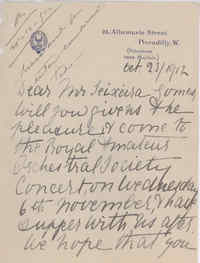 24, Albemarle Street,
Piccadilly, W.
Oct 23/1912
Dear Mr Teixeira Gomes
Will you give us the
pleasure & come to
the Royal Amateur
Orchestral Society
Concert on Wednesday
6th November, & have
supper with us after.
We hope that you